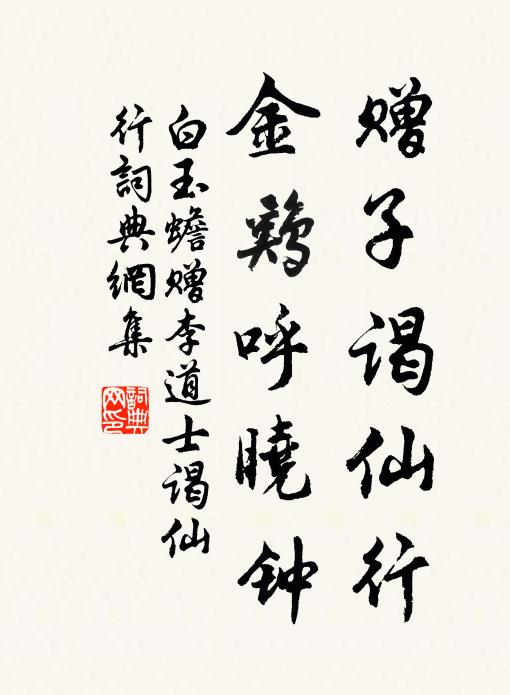 赠子谒仙行
金鷄呼曉钟
白玉蟾赠李道士谒仙
行詞典網集
詞典网印